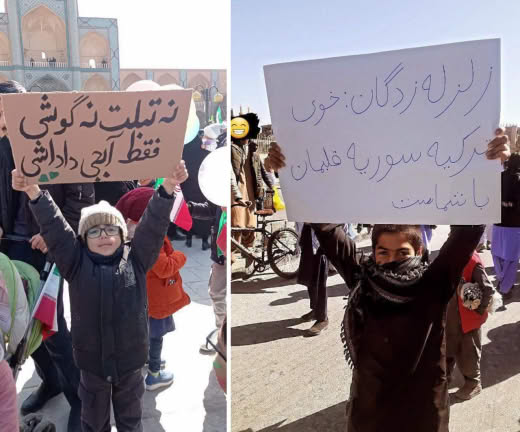 نه تبلت نه گوشی
فقط آبجی داداشی
زلزله زدگان: خوی
ترکیه سوریه قلبمان
با شماست